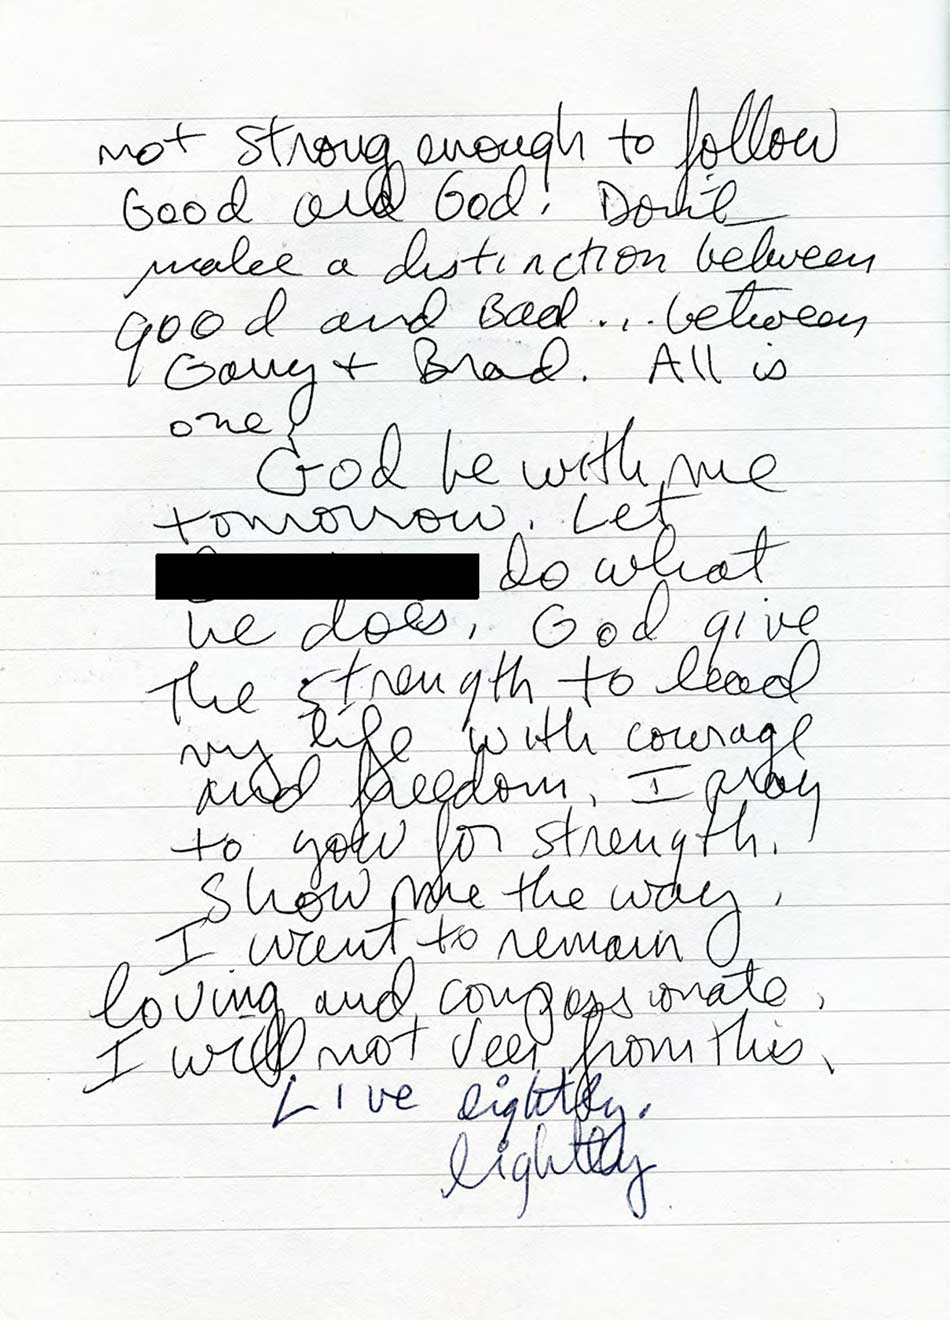 not strong enough to follow
Good and God! Don't
make a distinction between
good and Bad... between
Garry + Brad. All is
one!
God be with me
tomorrow. Let
do what
he does. God give
the strength to lead
my life with courage
and freedom. I pray
to you for strength.
Show me the way.
I want to remain
loving and compassionate.
I will not veer from this.
Live lightly.
lightly